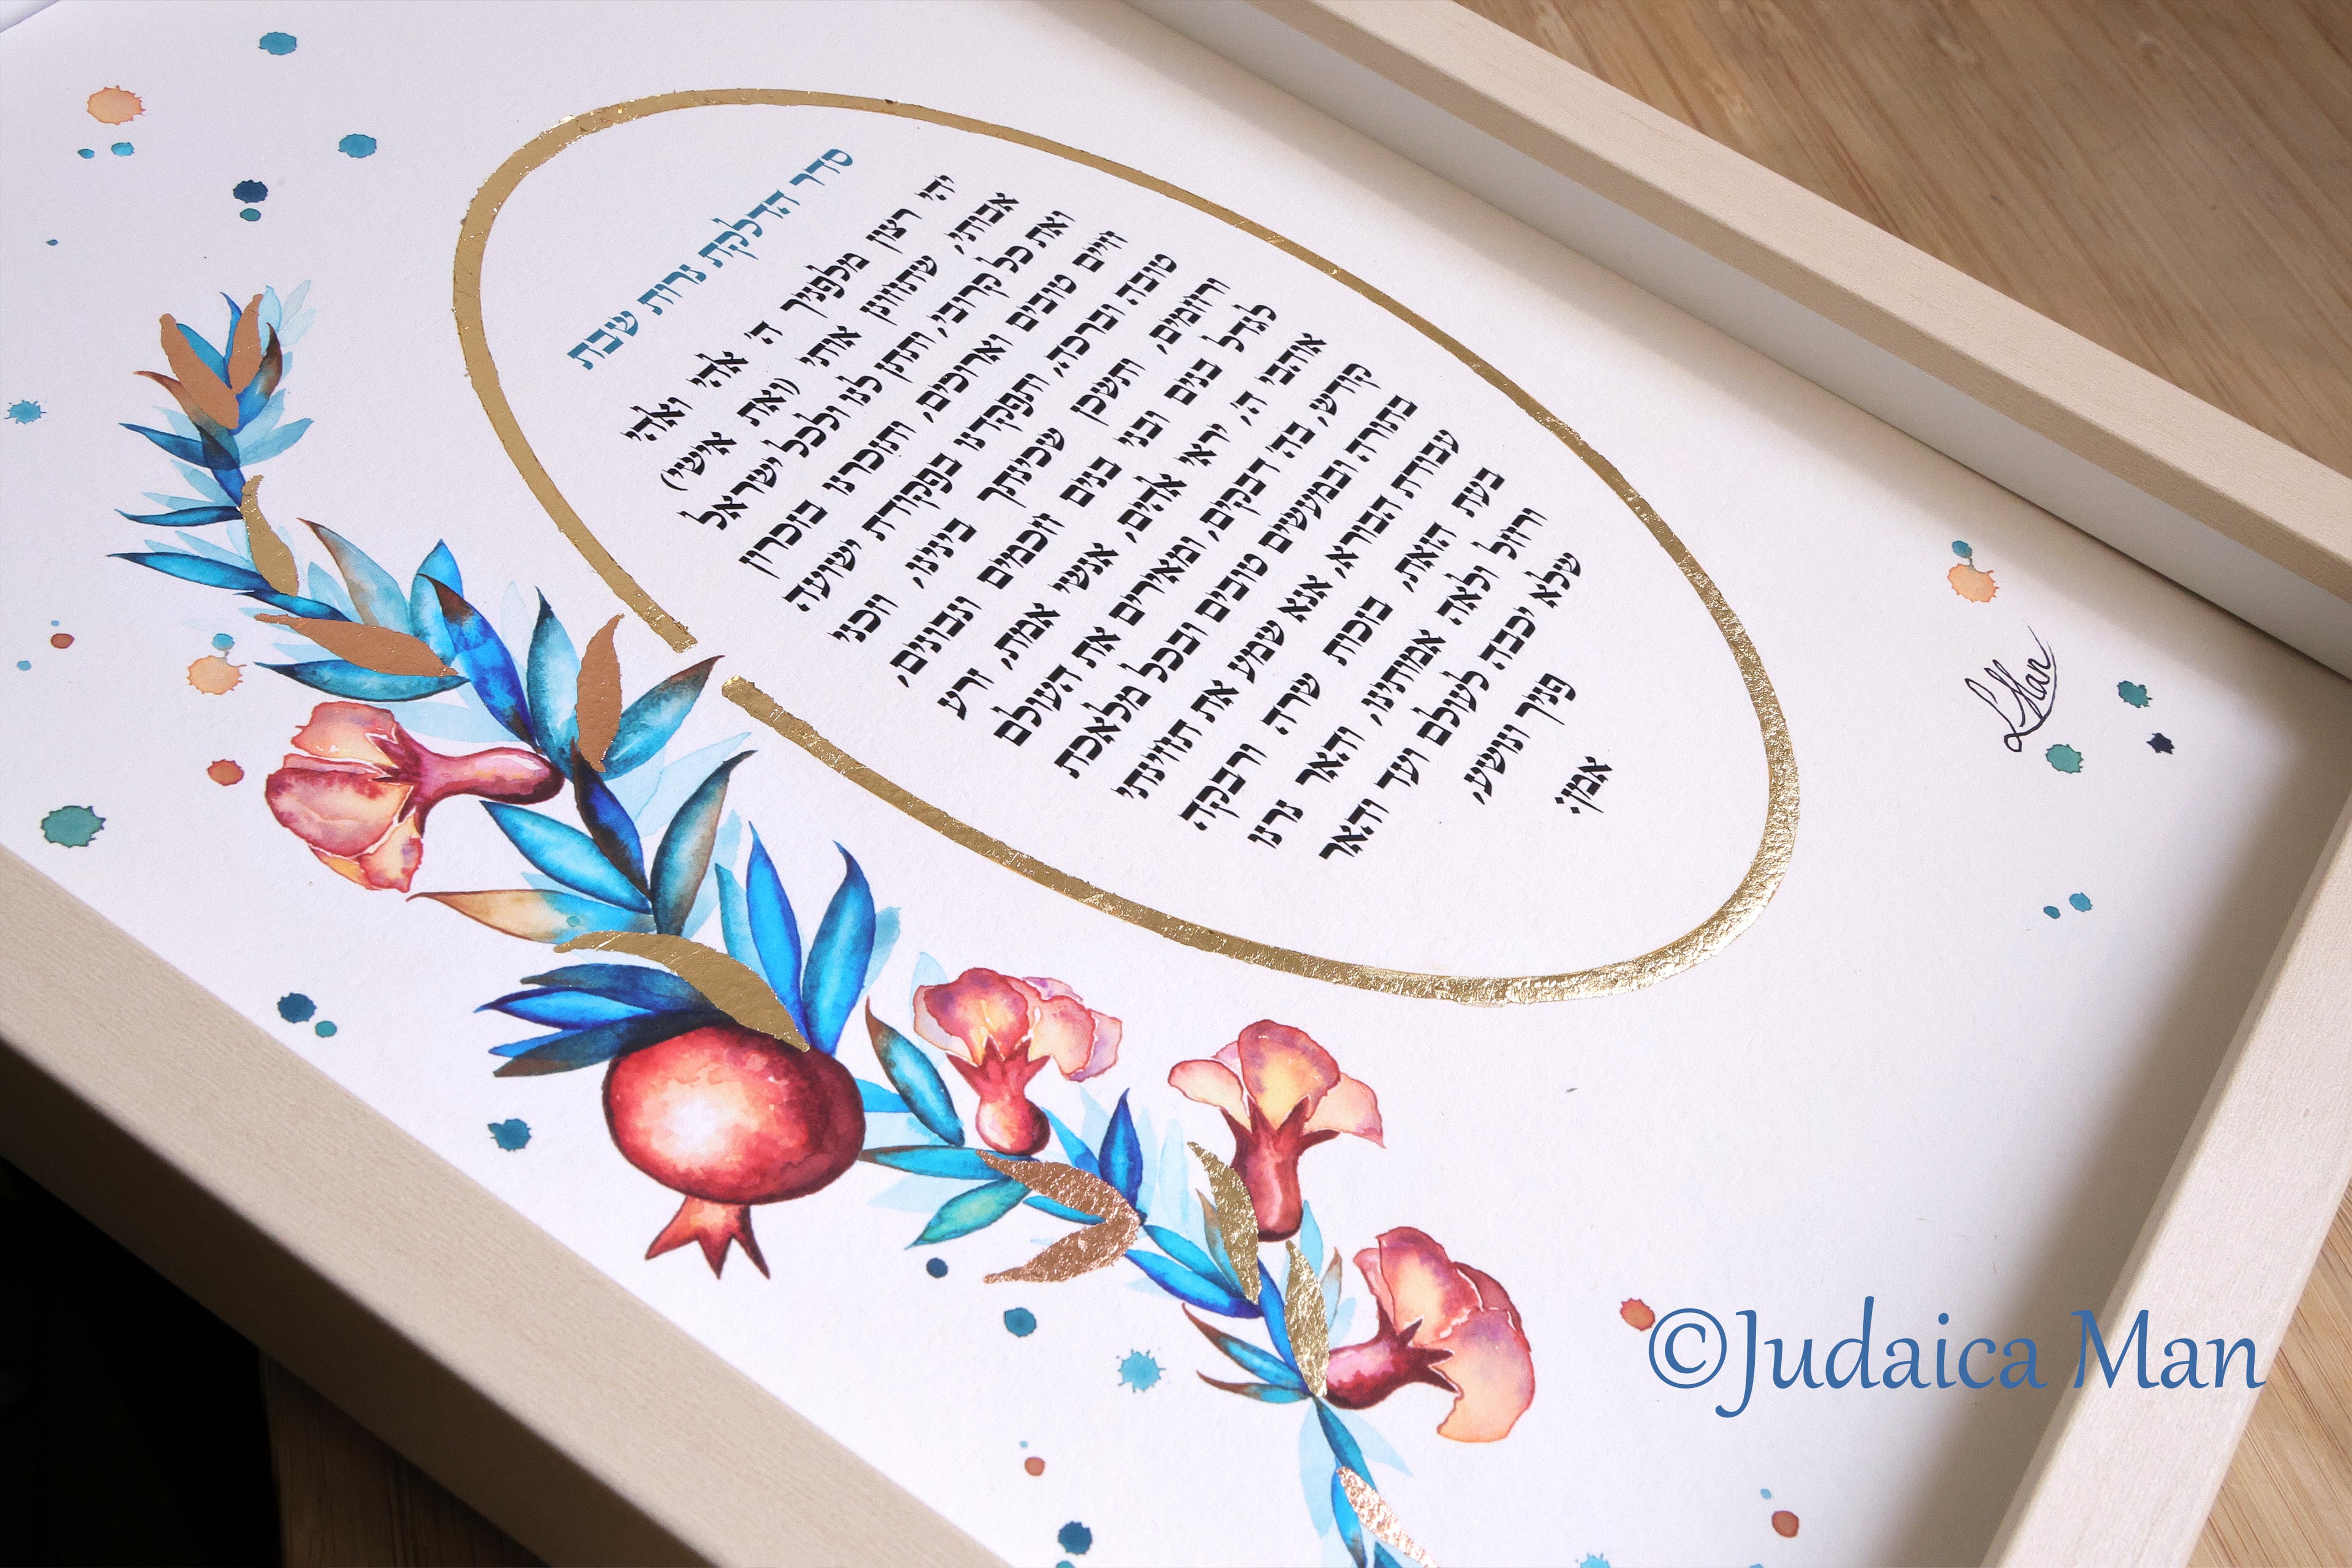 סדר הדלקת נרות שבת
יהי רצון מלפניך ה' אלהי ואלהי
אבותי, שתחונן אותי (ואת אישי)
ואת כל קרובי, ותתן לנו ולכל ישראל
חיים טובים וארוכים, ותזכרנו בזכרון
טובה וברכה, ותפקדנו בפקודת ישועה
ורחמים, ותשכן שכינתך בינינו, וזכני
לגדל בנים ובני בנים חכמים ונבונים,
אוהבי ה', יראי אלהים, אנשי אמת, זרע
קודש, בה' דבקים, ומאירים את העולם
בתורה ובמעשים טובים ובכל מלאכת
עבודת הבורא, אנא שמע את תחינתי
בעת הזאת, בזכות שרה ורבקה
ורחל ולאה אמותינו, והאר נרנו
שלא יכבה לעולם ועד והאר
פניך ונושע,
אמן:
L. Man
©Judaica Man